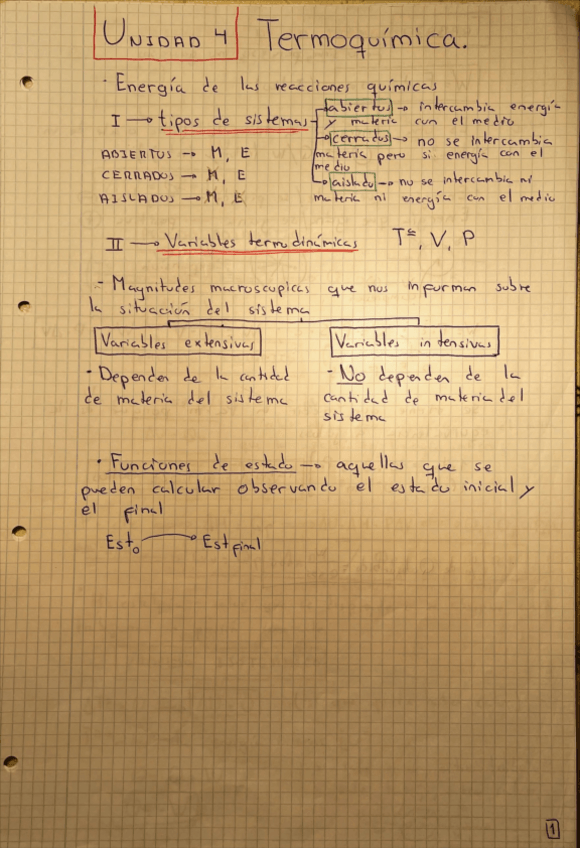 UNIDAD 4 Termoquímica.
· Energía de las reacciones químicas
I → tipos de sistemas
abiertos → intercambia energía
y materia con el medio
cerrados → no se intercambia
materia pero si energía con el
medio
aislado → no se intercambia ni
materia ni energía con el medio
ABIERTOS → M, E
CERRADOS → M, E
AISLADOS → M, E
II → Variables termodinámicas Tª, V, P
- Magnitudes macroscopicas que nos informan sobre
la situación del sistema
Variables extensivas
· Dependen de la cantidad
de materia del sistema
Variables intensivas
- No dependen de la
cantidad de materia del
sistema
· Funciones de estado → aquellas que se
pueden calcular observando el estado inicial y
el final
Est₀ → Est final
1